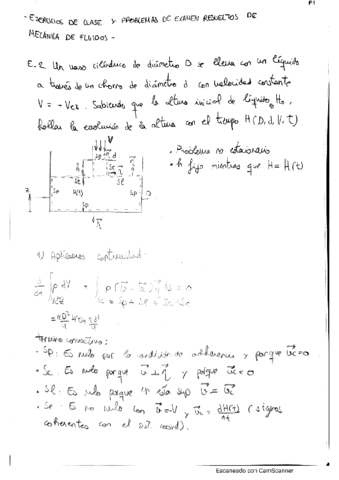 P1
- EJERCICIOS DE CLASE Y PROBLEMAS DE EXAMEN RESUELTOS DE
MECÁNICA DE FLUIDOS -
E.2. Un vaso cilíndrico de diámetro D se llena con un líquido
a través de un chorro de diámetro d con velocidad constante
V = -Vez. Sabiendo que la altura inicial de líquido, Ho,
hallar la evolución de la altura con el tiempo H(D,d,V,t)
• Problema no estacionario
• h fijo mientras que H = H(t)
V
d
Se
Sc
Sp
H(t)
Sl
Sp
D
Sp
1) Aplicamos continuidad:
término convectivo:
• Sp: Es nulo por la condición de adherencia y porque vc = 0
• Sc: Es nulo porque v ⊥ n y porque vc = 0
• Sl: Es nulo porque en esta sup v = vc
• Se: Es no nulo con v = V y vc = dH(t)/dt (signos
coherentes con el sist. coord).
Escaneado con CamScanner